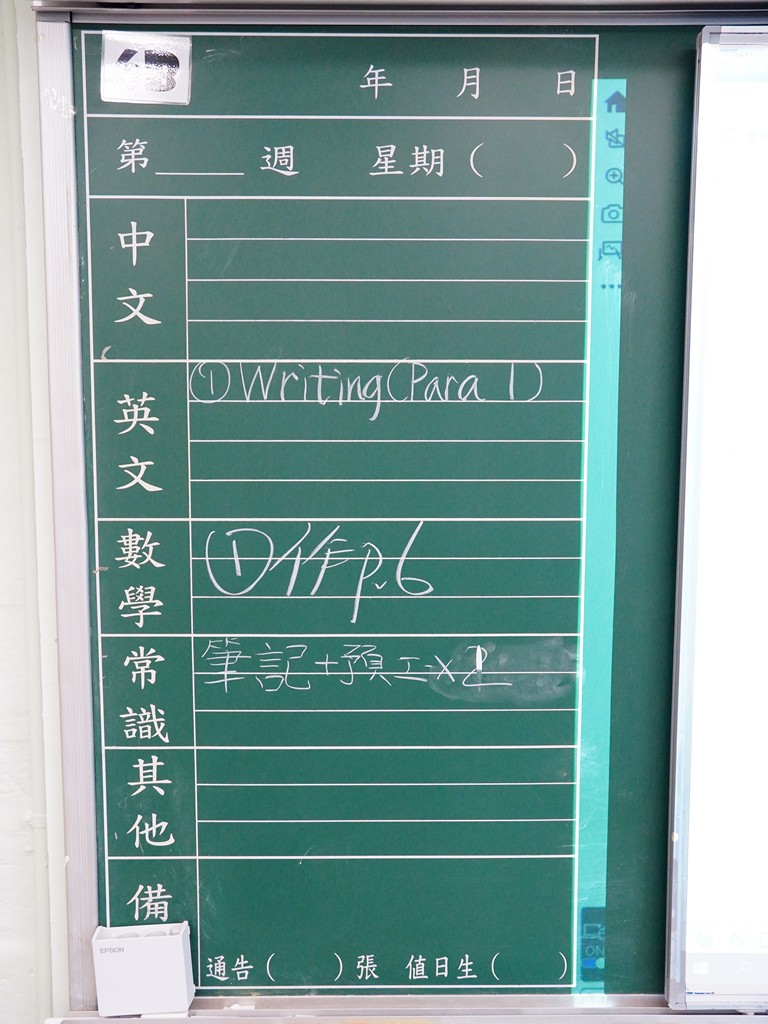 6B
年 月 日
第____週 星期( )
中文
英文
①Writing(Para 1)
數學
①作p.6
常識
筆記+預工×2
其他
備
EPSON
通告( )張 值日生( )
ON